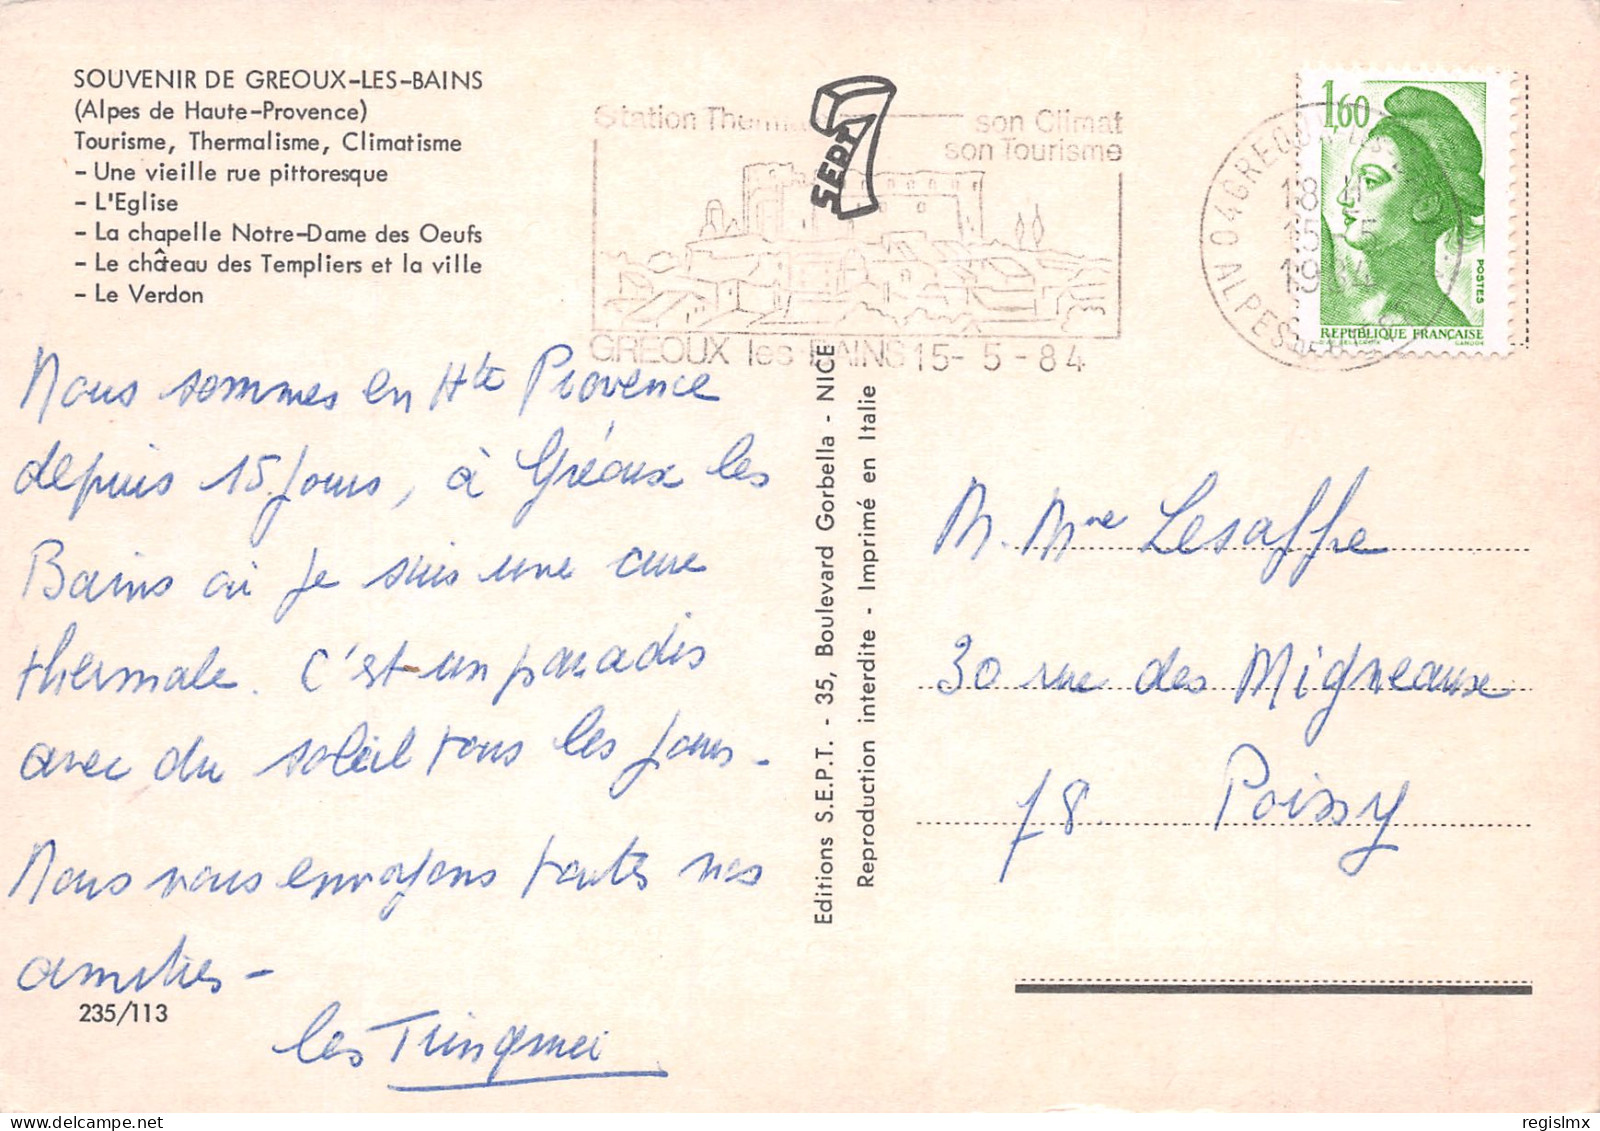 SOUVENIR DE GREOUX-LES-BAINS
(Alpes de Haute-Provence)
Tourisme, Thermalisme, Climatisme
- Une vieille rue pittoresque
- L'Eglise
- La chapelle Notre-Dame des Oeufs
- Le château des Templiers et la ville
- Le Verdon
Station Thermale
son Climat
son Tourisme
SEPT
GREOUX les BAINS 15-5-84
04 GREOUX
18 H
15-5
1984
ALPES
1,60
POSTES
REPUBLIQUE FRANÇAISE
Nous sommes en Hte Provence
depuis 15 jours, à Gréoux les
Bains où je suis une cure
thermale. C'est un paradis
avec du soleil tous les jours -
Nous vous envoyons toutes nos
amitiés -
les
235/113
Editions S.E.P.T. - 35, Boulevard Gorbella - NICE
Reproduction interdite - Imprimé en Italie
M. Mme Lesaffre
30 rue des Migneaux
78 Poissy
regislmx